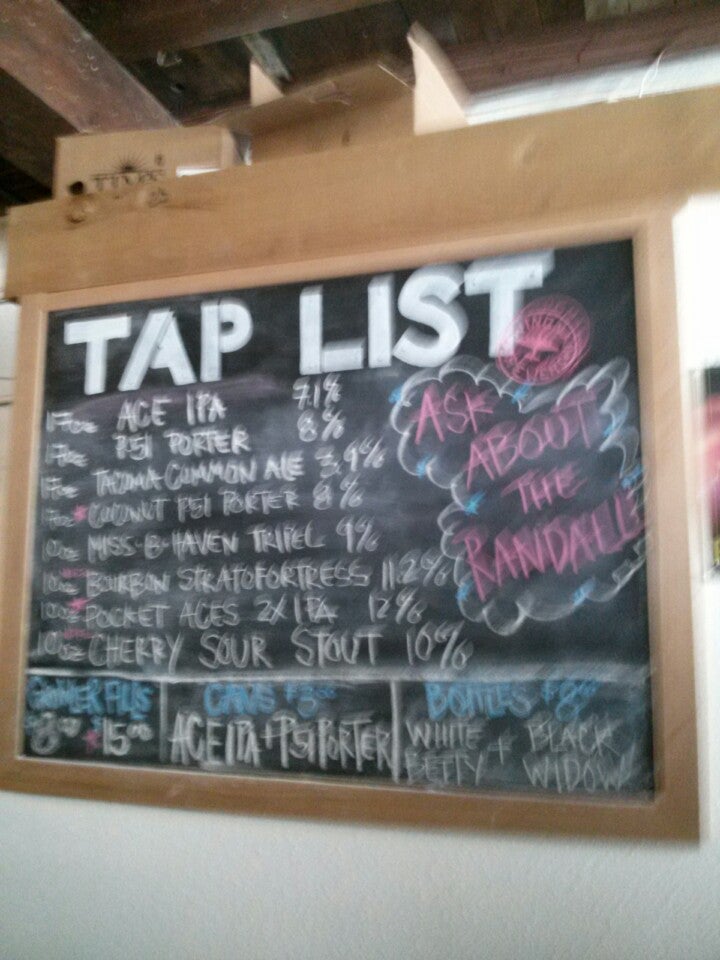 TAP LIST
17oz ACE IPA 7.1%
17oz P51 PORTER 8%
17oz TACOMA COMMON ALE 3.9%
7oz * COCONUT P51 PORTER 8%
10oz MISS-B-HAVEN TRIPEL 9%
10oz BOURBON STRATOFORTRESS 11.2%
10oz POCKET ACES 2X IPA 12%
10oz CHERRY SOUR STOUT 10%
ASK
ABOUT
THE
RANDALL
GROWLER FILLS
$8.00 * $15.00
CANS
ACE IPA + P51 PORTER
BOTTLES
WHITE BETTY + BLACK WIDOW